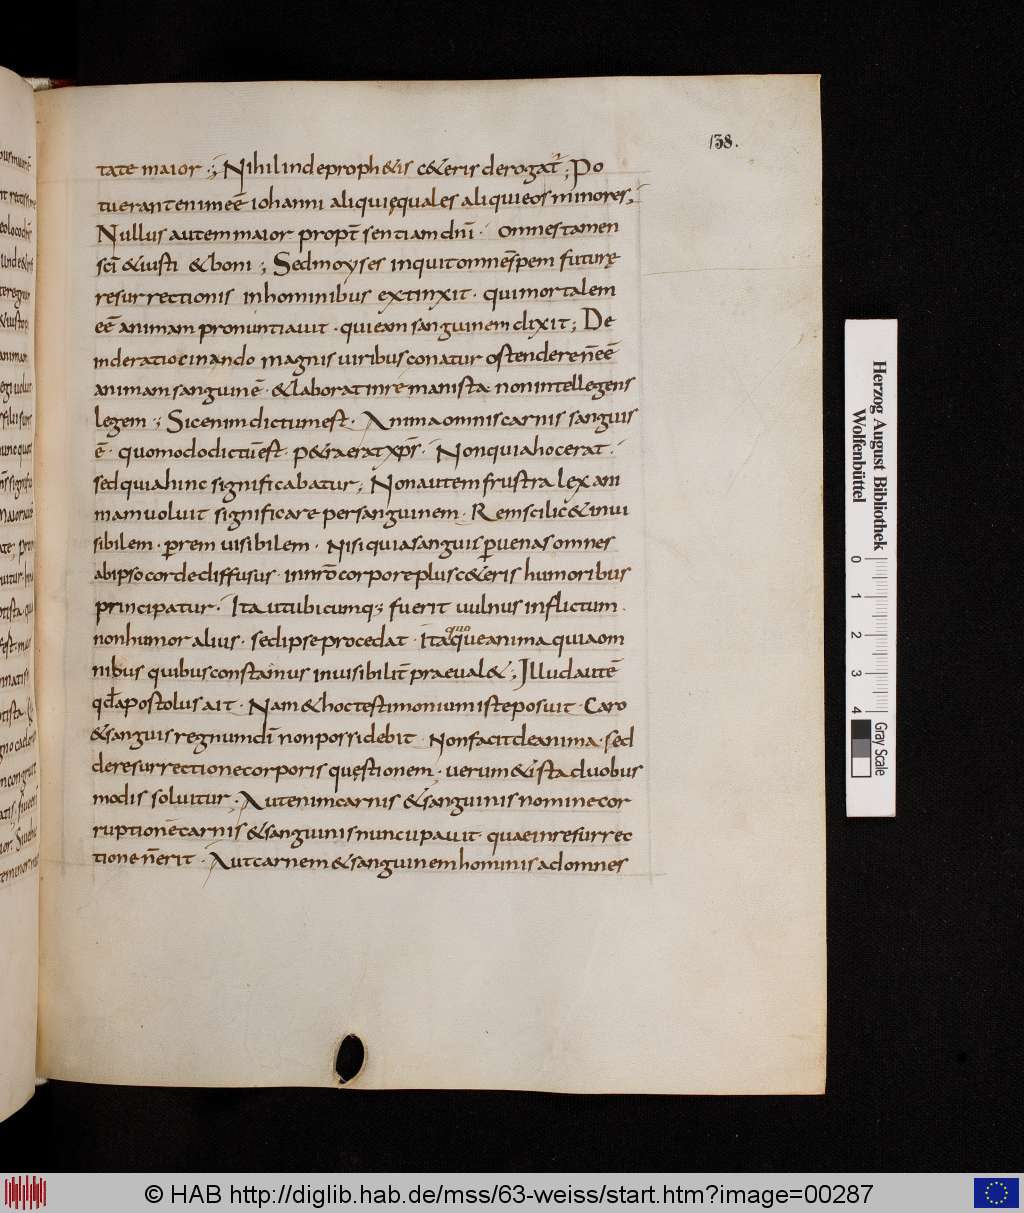 138.
tate maior ·; Nihil inde proph&is c&eris derogat̄ ; Po
tuerant enim eē iohanni aliqui ęquales aliqui eos minores;
Nullus autem maior propt̄ sententiam dnī · Omnes tamen
sc̄i & iusti & boni ; Sed moyses inquit omnē spem futurę
resurrectionis in hominibus extinxit · qui mortalem
eē animam pronuntiavit · qui eam sanguinem dixit ; De
inde ratiocinando magnis viribus conatur ostendere n̄ eē
animam sanguinē · & laborat in re manifesta non intellegens
legem ·; Sic enim dictum est · Anima omnis carnis sanguis
ē · quomodo dictū est · p&ra erat xp̄s · Non quia hoc erat ·
sed quia hinc significabatur ; Non autem frustra lex ani
mam voluit significare per sanguinem · Rem scilic& invi
sibilem · p̱ rem visibilem · Nisi quia sanguis p̱ venas omnes
ab ipso corde diffusus · in nr̄o corpore plus c&eris humoribus
principatur · Ita ut ubicumq; fuerit vulnus inflictum ·
non humor alius · sed ipse procedat · Ita quoque anima quia om
nibus quibus constamus invisibilit̄ praeval& ; Illud autē
qđ apostolus ait · Nam & hoc testimonium iste posuit · Caro
& sanguis regnum dī non possidebit · Non facit de anima · sed
de resurrectione corporis quęstionem · verum & ista duobus
modis solvitur · Aut enim carnis & sanguinis nomine cor
ruptionē carnis & sanguinis nuncupavit · quae in resurrec
tione n̄ erit · Aut carnem & sanguinem hominis ad omnes
Herzog August Bibliothek
Wolfenbüttel
0 1 2 3 4
Gray Scale
© HAB http://diglib.hab.de/mss/63-weiss/start.htm?image=00287